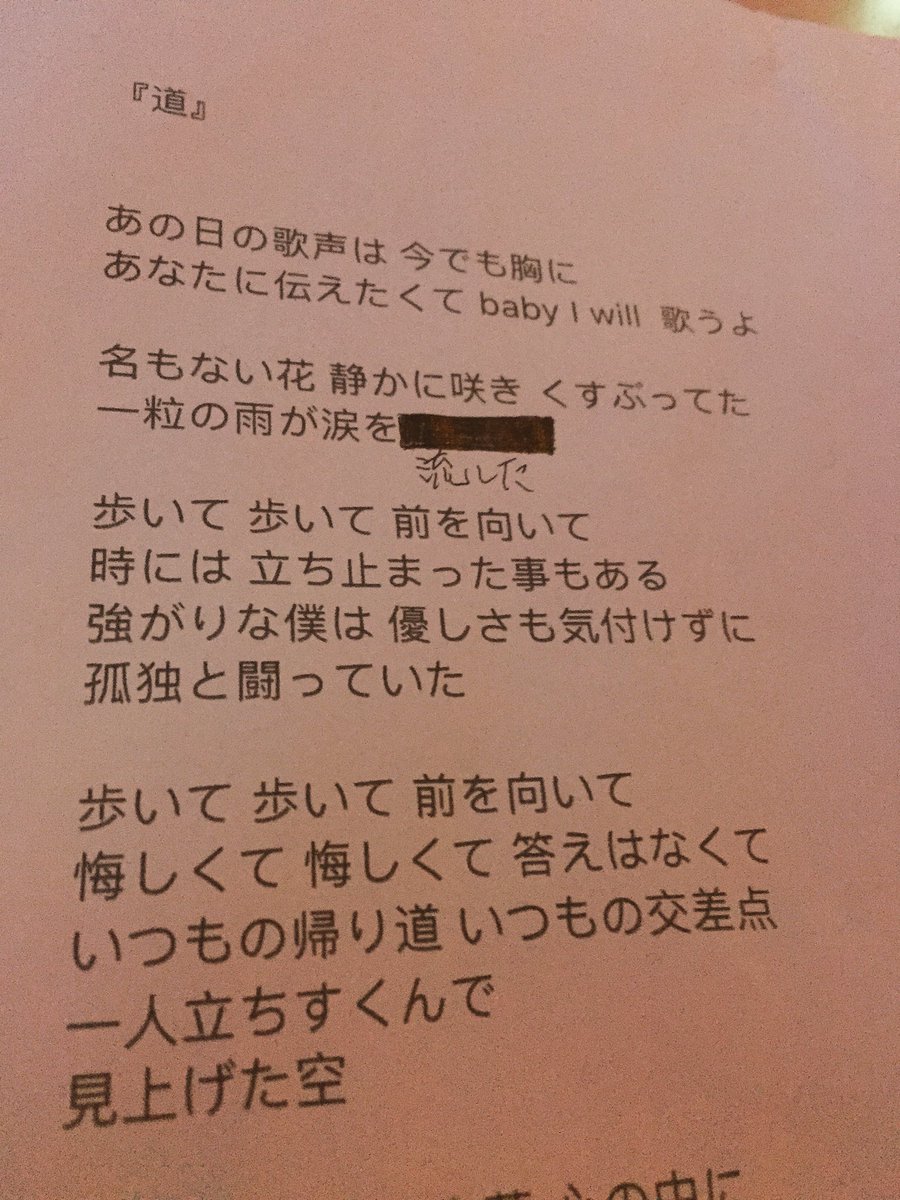 『道』
あの日の歌声は 今でも胸に
あなたに伝えたくて baby I will 歌うよ
名もない花 静かに咲き くすぶってた
一粒の雨が涙を
流した
歩いて 歩いて 前を向いて
時には 立ち止まった事もある
強がりな僕は 優しさも気付けずに
孤独と闘っていた
歩いて 歩いて 前を向いて
悔しくて 悔しくて 答えはなくて
いつもの帰り道 いつもの交差点
一人立ちすくんで
見上げた空
心の中に